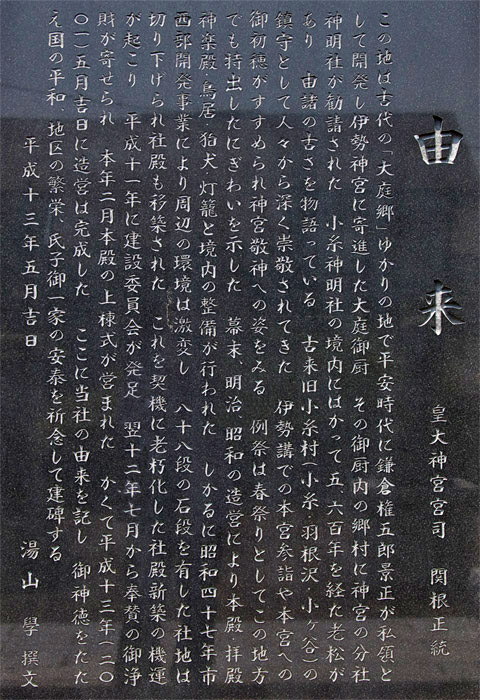 由来
皇大神宮宮司 関根正統
この地は古代の「大庭郷」ゆかりの地で平安時代に鎌倉権五郎景正が私領と
して開発し伊勢神宮に寄進した大庭御厨 その御厨内の郷村に神宮の分社
神明社が勧請された 小糸神明社の境内にはかつて五、六百年を経た老松が
あり 由諸の古さを物語っている 古来旧小糸村(小糸、羽根沢、小ヶ谷)の
鎮守として人々から深く崇敬されてきた 伊勢講での本宮参詣や本宮への
御初穂がすすめられ神宮敬神への姿をみる 例祭は春祭りとしてこの地方
でも特出したにぎわいを示した 幕末、明治、昭和の造営により本殿、拝殿
神楽殿、鳥居、狛犬、灯籠と境内の整備が行われた しかるに昭和四十七年市
西部開発事業により周辺の環境は激変し 八十八段の石段を有した社地は
切り下げられ社殿も移築された これを契機に老朽化した社殿新築の機運
が起こり 平成十一年に建設委員会が発足 翌十二年七月から奉賛の御浄
財が寄せられ 本年二月本殿の上棟式が営まれた かくて平成十三年(二〇
〇一)五月吉日に造営は完成した ここに当社の由来を記し 御神徳をたた
え国の平和、地区の繁栄、氏子御一家の安泰を祈念して建碑する
平成十三年五月吉日
湯山 學 撰文